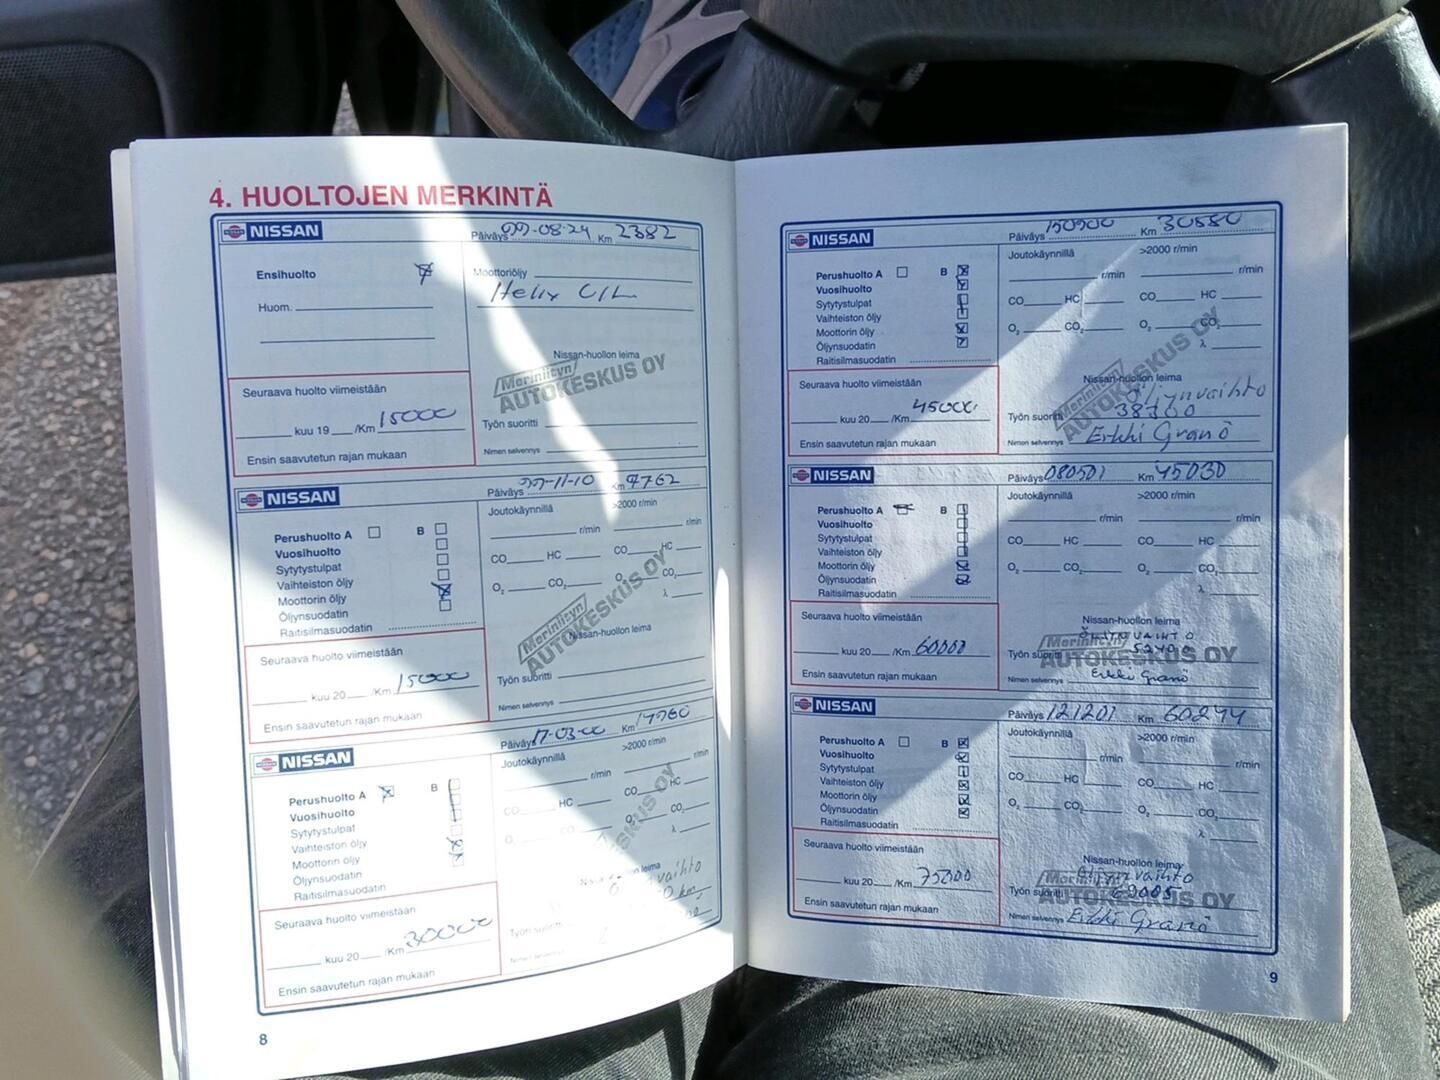 4. HUOLTOJEN MERKINTÄ
NISSAN
Päiväys 99-08-24 Km 2382
Ensihuolto
Huom.
Moottoriöljy
Helix
Nissan-huollon leima
Meriniityn
AUTOKESKUS OY
Työn suoritti
Nimen selvennys
Seuraava huolto viimeistään
kuu 19 /Km 15000
Ensin saavutetun rajan mukaan
NISSAN
Päiväys 99-11-10 Km 9762
Perushuolto A B
Vuosihuolto
Sytytystulpat
Vaihteiston öljy
Moottorin öljy
Öljynsuodatin
Raitisilmasuodatin
Joutokäynnillä >2000 r/min
r/min r/min
CO HC CO HC
O2 CO2 O2 CO2
λ
Nissan-huollon leima
Meriniityn
AUTOKESKUS OY
Työn suoritti
Nimen selvennys
Seuraava huolto viimeistään
kuu 20 /Km 15000
Ensin saavutetun rajan mukaan
NISSAN
Päiväys 17-03-00 Km
Perushuolto A B
Vuosihuolto
Sytytystulpat
Vaihteiston öljy
Moottorin öljy
Öljynsuodatin
Raitisilmasuodatin
Joutokäynnillä >2000 r/min
r/min r/min
CO HC CO HC
O2 CO2 O2 CO2
λ
KESKUS OY
leima
vaihto
km
Työn suoritti
Nimen selvennys
Seuraava huolto viimeistään
kuu 20 /Km 30000
Ensin saavutetun rajan mukaan
8
NISSAN
Päiväys 150900 Km 30580
Perushuolto A B
Vuosihuolto
Sytytystulpat
Vaihteiston öljy
Moottorin öljy
Öljynsuodatin
Raitisilmasuodatin
Joutokäynnillä >2000 r/min
r/min r/min
CO HC CO HC
O2 CO2 O2 CO2
λ
Nissan-huollon leima
Meriniityn
AUTOKESKUS OY
Öljynvaihto
Työn suoritti 38700
Nimen selvennys Erkki Granö
Seuraava huolto viimeistään
kuu 20 /Km 45000
Ensin saavutetun rajan mukaan
NISSAN
Päiväys 080501 Km 45030
Perushuolto A B
Vuosihuolto
Sytytystulpat
Vaihteiston öljy
Moottorin öljy
Öljynsuodatin
Raitisilmasuodatin
Joutokäynnillä >2000 r/min
r/min r/min
CO HC CO HC
O2 CO2 O2 CO2
λ
Nissan-huollon leima
Meriniityn
AUTOKESKUS OY
ÖLJYNVAIHTO
Työn suoritti 52400
Nimen selvennys Erkki Granö
Seuraava huolto viimeistään
kuu 20 /Km 60000
Ensin saavutetun rajan mukaan
NISSAN
Päiväys 121201 Km 60244
Perushuolto A B
Vuosihuolto
Sytytystulpat
Vaihteiston öljy
Moottorin öljy
Öljynsuodatin
Raitisilmasuodatin
Joutokäynnillä >2000 r/min
r/min r/min
CO HC CO HC
O2 CO2 O2 CO2
λ
Nissan-huollon leima
Meriniityn
AUTOKESKUS OY
Öljynvaihto
Työn suoritti
Nimen selvennys Erkki Granö
Seuraava huolto viimeistään
kuu 20 /Km 75000
Ensin saavutetun rajan mukaan
9